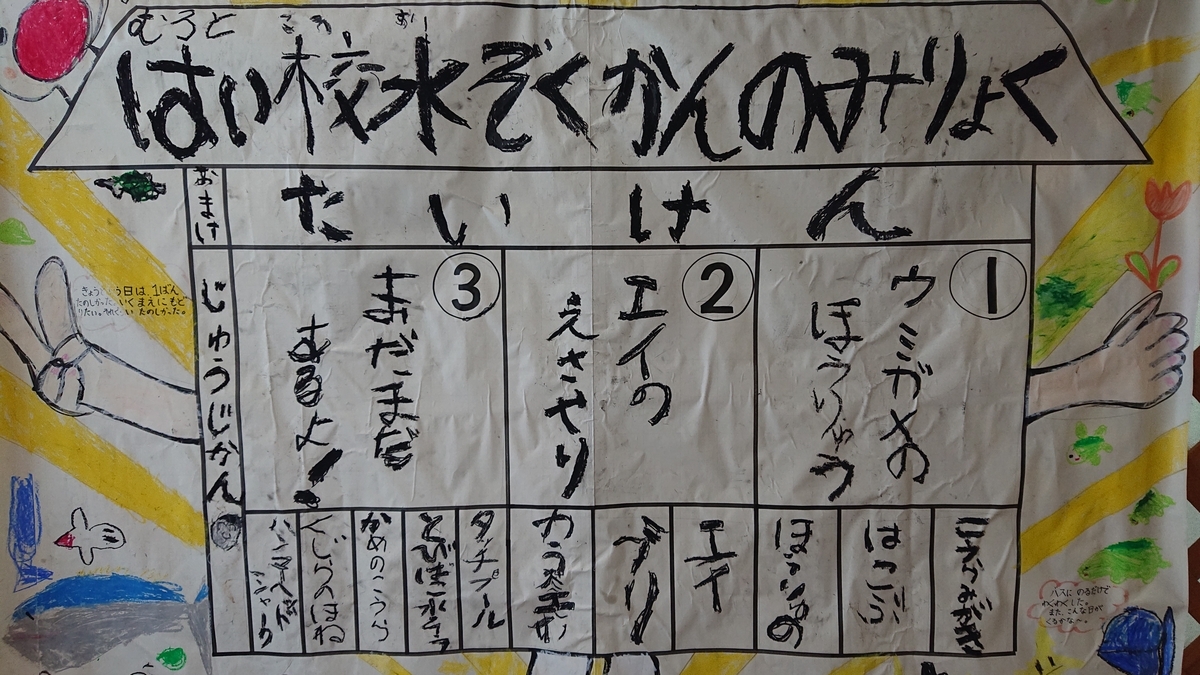 むろと
はい校水ぞくかんのみりょく
たいけん
おまけ
①
ウミガメの
ほうりゅう
②
エイの
えさやり
③
まだまだ
あるよ!
じゅうじかん
はこぶ
エイ
ブリ
タッチプール
とびばこ水そう
かめのこうら
くじらのほね
ハンマーヘッド
シャーク
きょういう日は、1ばん
たのしかった。いくまえにもど
りたい。
たのしかった。
バスにのるだけで
わくわくした。
また、こんな日が
くるかな~。